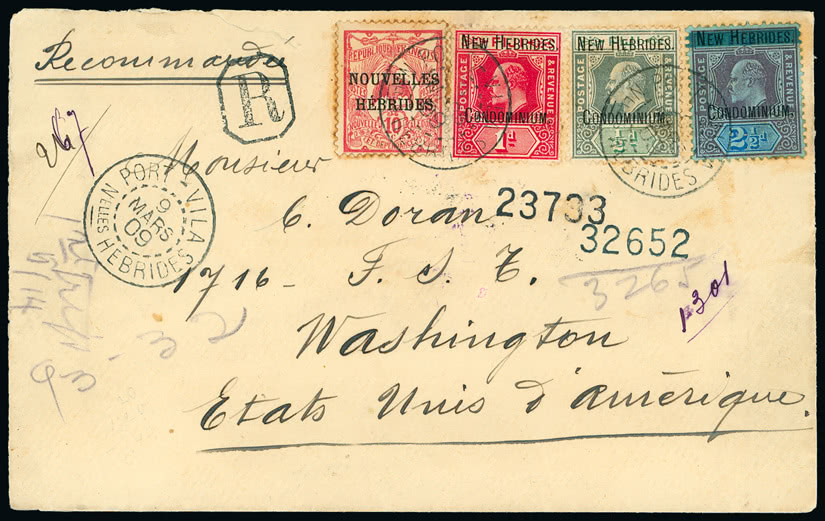 Recommandée
R
NOUVELLES
HÉBRIDES.
10
NEW HEBRIDES.
POSTAGE & REVENUE
CONDOMINIUM.
1d
NEW HEBRIDES.
POSTAGE & REVENUE
CONDOMINIUM.
½d
NEW HEBRIDES.
POSTAGE & REVENUE
CONDOMINIUM.
2½d
PORT-VILA
9
MARS
09
NELLES HEBRIDES
Monsieur
C. Doran
23733
32652
1716 - F. S. T.
3265
1301
Washington
Etats Unis d'amérique.